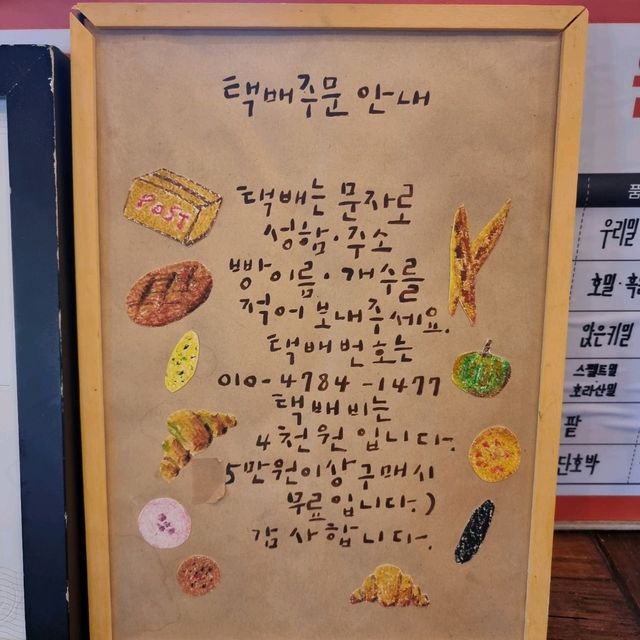 택배주문 안내
POST
택배는 문자로
성함·주소
빵이름·개수를
적어 보내주세요.
택배번호는
010-4784-1477
택배비는
4천원입니다.
5만원이상 구매시
무료입니다.)
감사합니다.
품
우리밀
호밀·흑
앉은키밀
스펠트밀
호라산밀
팥
단호박